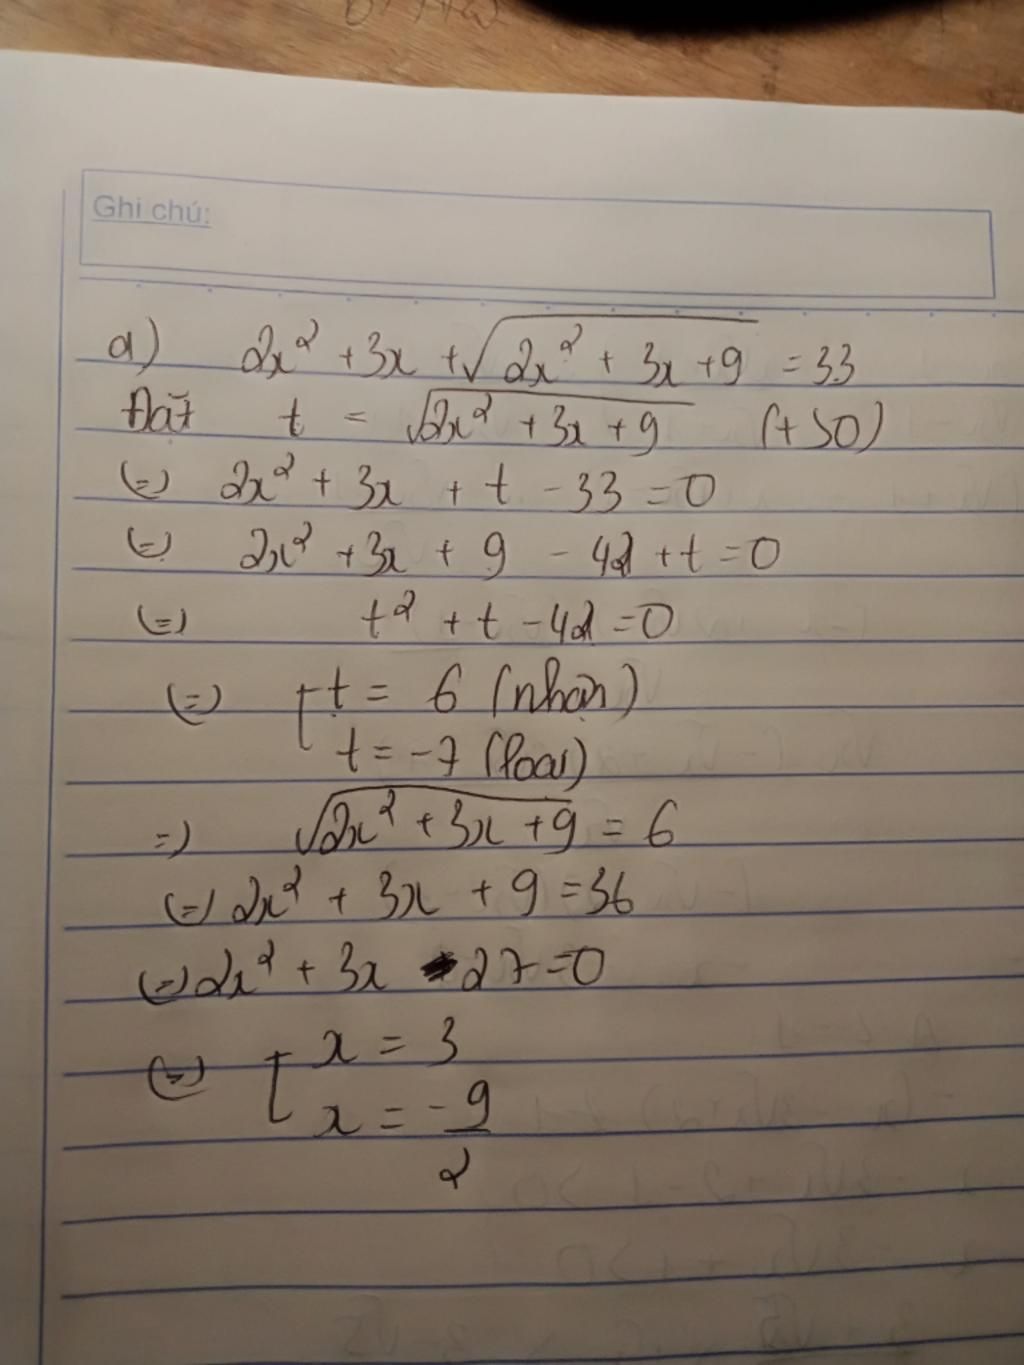 Ghi chú:
a) 2x² + 3x + √(2x² + 3x + 9) = 33
Đặt t = √(2x² + 3x + 9) (t > 0)
(=) 2x² + 3x + t - 33 = 0
(=) 2x² + 3x + 9 - 42 + t = 0
(=) t² + t - 42 = 0
(=) [ t = 6 (nhận)
t = -7 (loại)
=) √(2x² + 3x + 9) = 6
(=) 2x² + 3x + 9 = 36
(=) 2x² + 3x - 27 = 0
(=) [ x = 3
x = -9/2